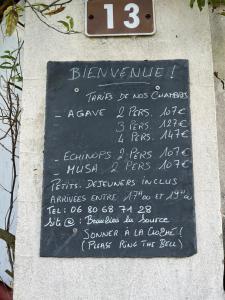 13
BIENVENUE !
TARIFS DE NOS CHAMBRES
- AGAVE 2 PERS. 107€
3 PERS. 127€
4 PERS. 147€
- ECHINOPS 2 PERS 107€
- MUSA 2 PERS 107€
PETITS. DEJEUNERS INCLUS
ARRIVEES ENTRE 17H00 ET 19H
TEL: 06 80 68 71 28
Site @ : Beaulieu la Source
SONNER À LA CLOCHE !
(PLEASE RING THE BELL)